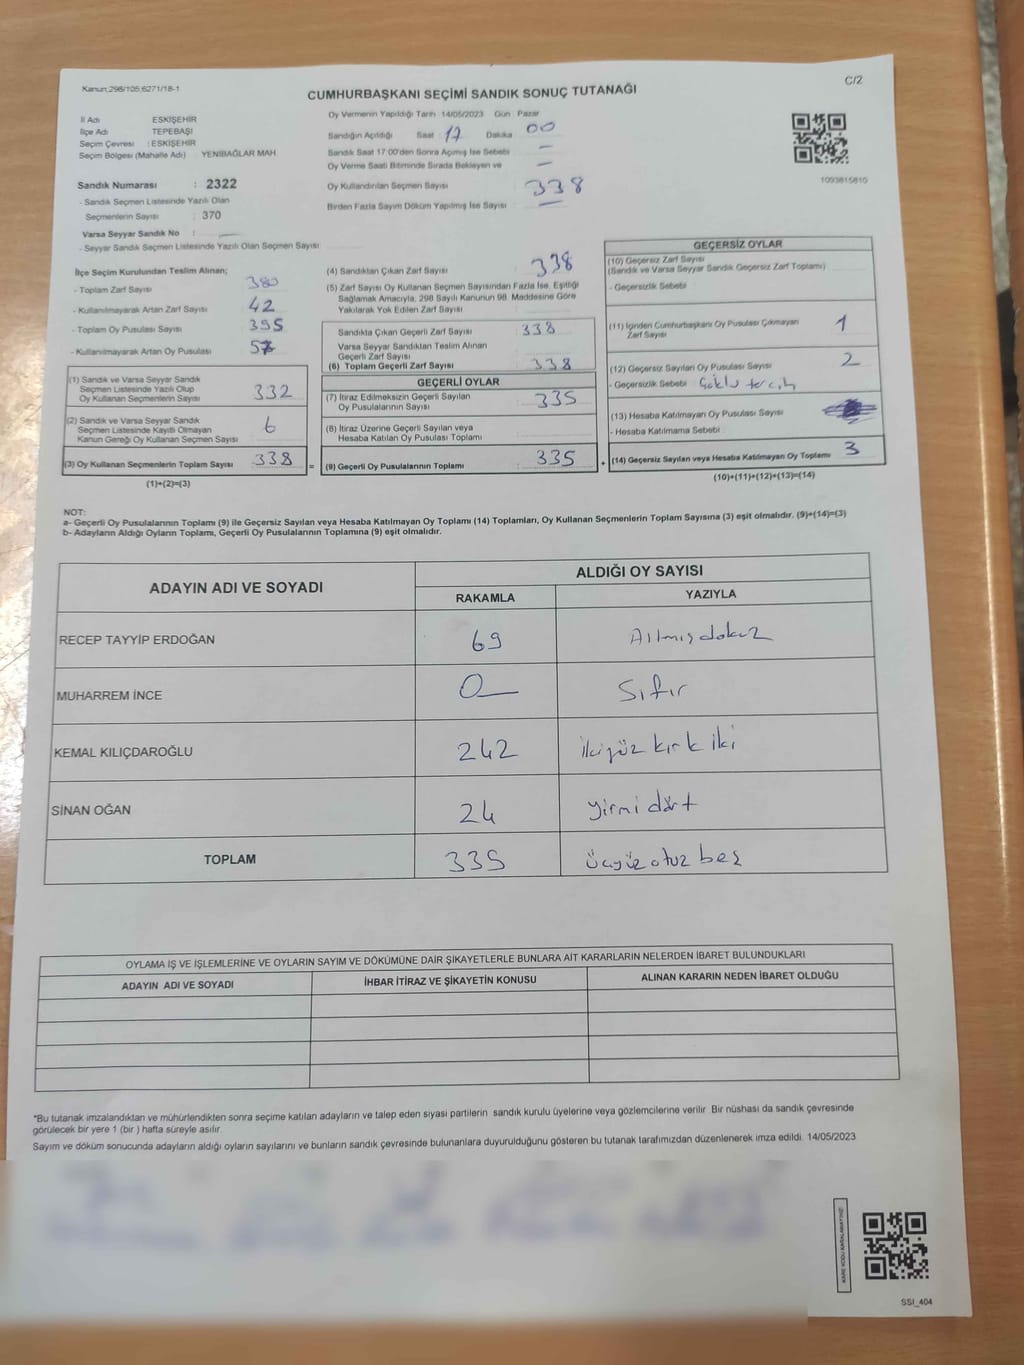 Kanun;298/105,6271/18-1
C/2
CUMHURBAŞKANI SEÇİMİ SANDIK SONUÇ TUTANAĞI
İl Adı ESKİŞEHİR
İlçe Adı TEPEBAŞI
Seçim Çevresi : ESKİŞEHİR
Seçim Bölgesi (Mahalle Adı) YENİBAĞLAR MAH.
Sandık Numarası : 2322
- Sandık Seçmen Listesinde Yazılı Olan
Seçmenlerin Sayısı : 370
Varsa Seyyar Sandık No :
- Seyyar Sandık Seçmen Listesinde Yazılı Olan Seçmen Sayısı
Oy Vermenin Yapıldığı Tarih 14/05/2023 Gün : Pazar
Sandığın Açıldığı Saat : 17 Dakika 00
Sandık Saat 17:00'den Sonra Açımış İse Sebebi -
Oy Verme Saati Bitiminde Sırada Bekleyen ve -
Oy Kullandırılan Seçmen Sayısı : 338
Birden Fazla Sayım Döküm Yapılmış İse Sayısı : -
1093815810
İlçe Seçim Kurulundan Teslim Alınan;
- Toplam Zarf Sayısı 380
- Kullanılmayarak Artan Zarf Sayısı 42
- Toplam Oy Pusulası Sayısı 395
- Kullanılmayarak Artan Oy Pusulası 57
(1) Sandık ve Varsa Seyyar Sandık
Seçmen Listesinde Yazılı Olup
Oy Kullanan Seçmenlerin Sayısı 332
(2) Sandık ve Varsa Seyyar Sandık
Seçmen Listesinde Kayıtlı Olmayan
Kanun Gereği Oy Kullanan Seçmen Sayısı 6
(3) Oy Kullanan Seçmenlerin Toplam Sayısı 338
(1)+(2)=(3)
(4) Sandıktan Çıkan Zarf Sayısı : 338
(5) Zarf Sayısı Oy Kullanan Seçmen Sayısından Fazla İse, Eşitliği
Sağlamak Amacıyla, 298 Sayılı Kanunun 98. Maddesine Göre
Yakılarak Yok Edilen Zarf Sayısı
Sandıkta Çıkan Geçerli Zarf Sayısı : 338
Varsa Seyyar Sandıktan Teslim Alınan
Geçerli Zarf Sayısı
(6) Toplam Geçerli Zarf Sayısı : 338
GEÇERLİ OYLAR
(7) İtiraz Edilmeksizin Geçerli Sayılan
Oy Pusulalarının Sayısı : 335
(8) İtiraz Üzerine Geçerli Sayılan veya
Hesaba Katılan Oy Pusulası Toplamı
= (9) Geçerli Oy Pusulalarının Toplamı : 335
GEÇERSİZ OYLAR
(10) Geçersiz Zarf Sayısı
(Sandık ve Varsa Seyyar Sandık Geçersiz Zarf Toplamı)
- Geçersizlik Sebebi
(11) İçinden Cumhurbaşkanı Oy Pusulası Çıkmayan 1
Zarf Sayısı
(12) Geçersiz Sayılan Oy Pusulası Sayısı : 2
- Geçersizlik Sebebi Çoklu tercih
(13) Hesaba Katılmayan Oy Pusulası Sayısı
- Hesaba Katılmama Sebebi :
+ (14) Geçersiz Sayılan veya Hesaba Katılmayan Oy Toplamı 3
(10)+(11)+(12)+(13)=(14)
NOT:
a- Geçerli Oy Pusulalarının Toplamı (9) ile Geçersiz Sayılan veya Hesaba Katılmayan Oy Toplamı (14) Toplamları, Oy Kullanan Seçmenlerin Toplam Sayısına (3) eşit olmalıdır. (9)+(14)=(3)
b- Adayların Aldığı Oyların Toplamı, Geçerli Oy Pusulalarının Toplamına (9) eşit olmalıdır.
ADAYIN ADI VE SOYADI ALDIĞI OY SAYISI
RAKAMLA YAZIYLA
RECEP TAYYİP ERDOĞAN 69 Altmış dokuz
MUHARREM İNCE 0 Sıfır
KEMAL KILIÇDAROĞLU 242 ikiyüz kırk iki
SİNAN OĞAN 24 yirmi dört
TOPLAM 335 üçyüz otuz beş
OYLAMA İŞ VE İŞLEMLERİNE VE OYLARIN SAYIM VE DÖKÜMÜNE DAİR ŞİKAYETLERLE BUNLARA AİT KARARLARIN NELERDEN İBARET BULUNDUKLARI
ADAYIN ADI VE SOYADI İHBAR İTİRAZ VE ŞİKAYETİN KONUSU ALINAN KARARIN NEDEN İBARET OLDUĞU
*Bu tutanak imzalandıktan ve mühürlendikten sonra seçime katılan adayların ve talep eden siyasi partilerin sandık kurulu üyelerine veya gözlemcilerine verilir. Bir nüshası da sandık çevresinde
görülecek bir yere 1 (bir ) hafta süreyle asılır.
Sayım ve döküm sonucunda adayların aldığı oyların sayılarını ve bunların sandık çevresinde bulunanlara duyurulduğunu gösteren bu tutanak tarafımızdan düzenlenerek imza edildi. 14/05/2023
KARE KODU KARALAMAYINIZ!
SSI_404